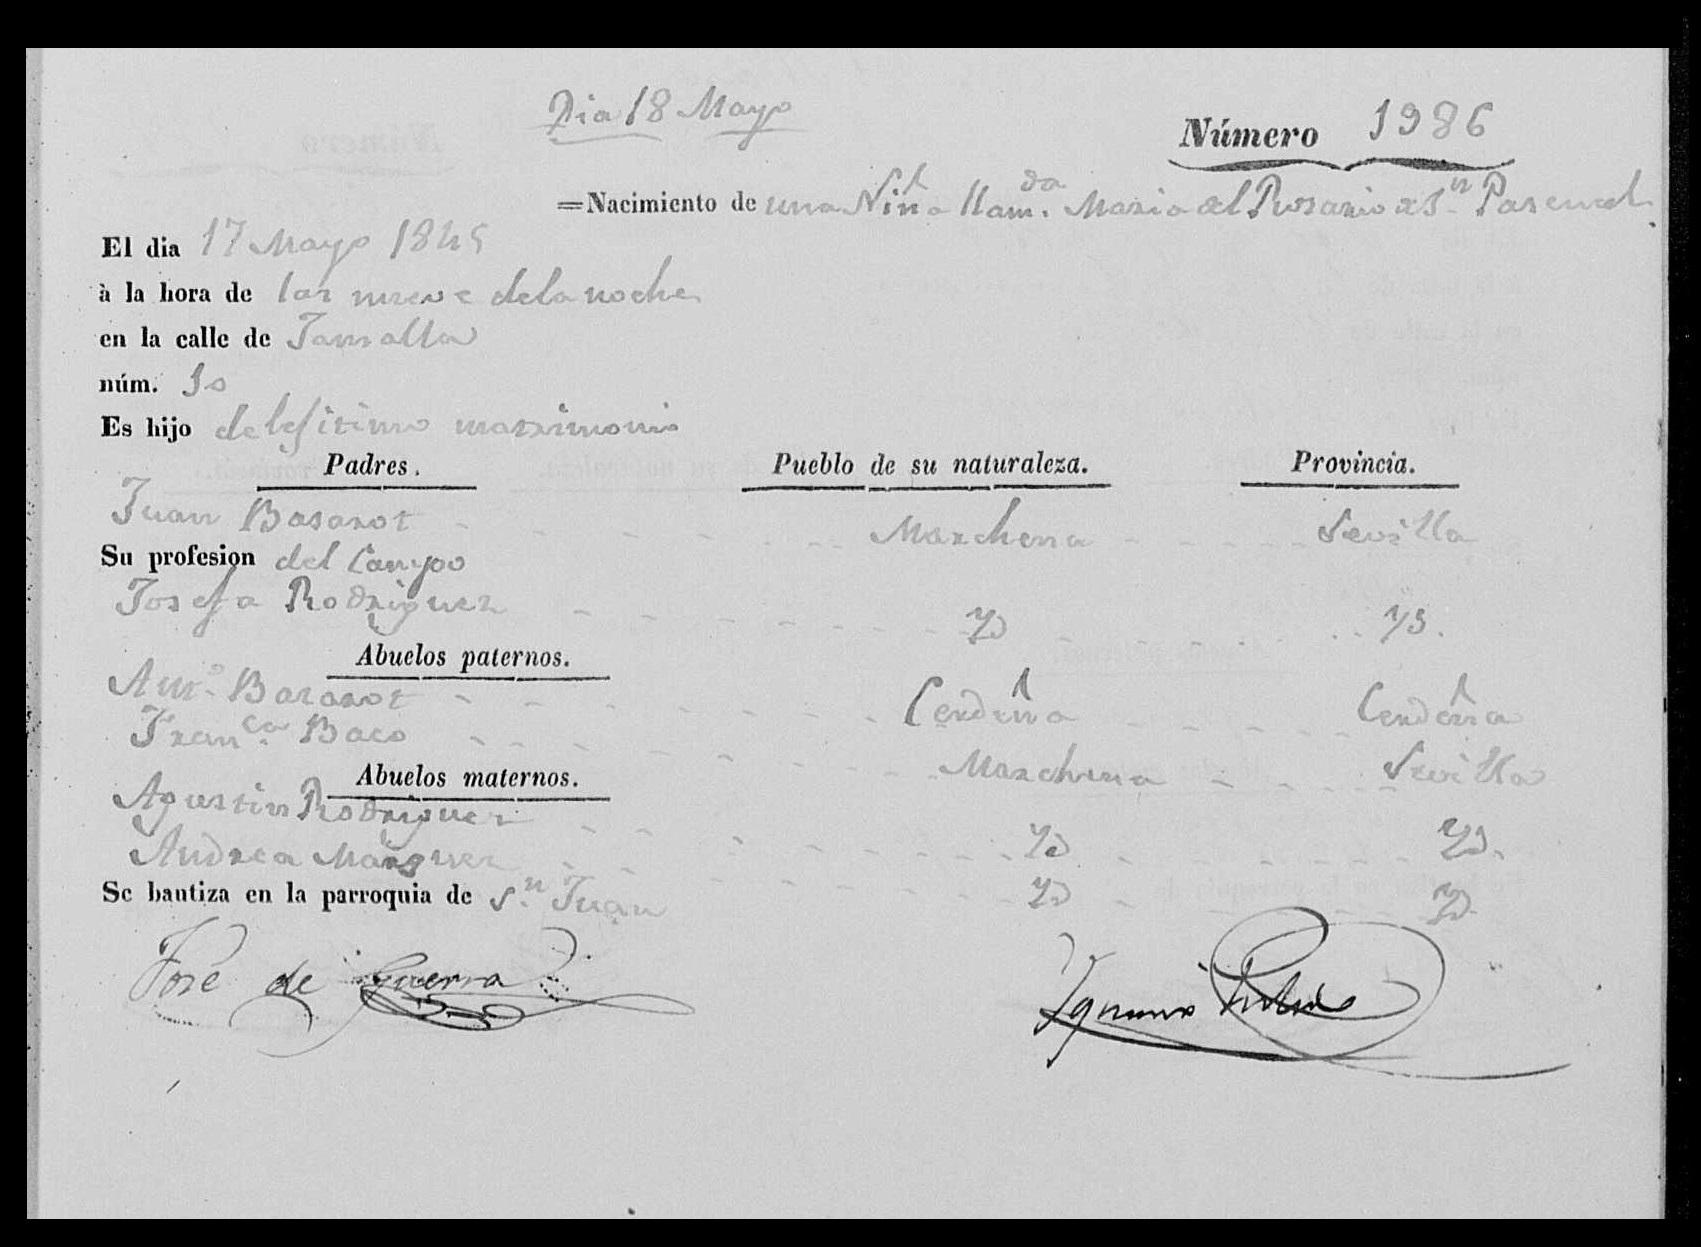 Dia 18 Mayo
Número 1986
=Nacimiento de una Niña llam.da Maria del Rosario de S.n Pascual.
El dia 17 Mayo 1845
à la hora de las nueve de la noche
en la calle de
núm. 10
Es hijo de lejitimo matrimonio
Padres. Pueblo de su naturaleza. Provincia.
Juan Basarot Marchena Sevilla
Su profesion del Campo
Josefa Rodriguez Yd Yd.
Abuelos paternos.
Ant.o Basarot Cerdeña Cerdeña
Fran.ca Baco Marchena Sevilla
Abuelos maternos.
Agustin Rodriguez Yd Yd.
Andrea Marquez Yd Yd
Se bautiza en la parroquia de S.n Juan
José de Guerra Ygnacio